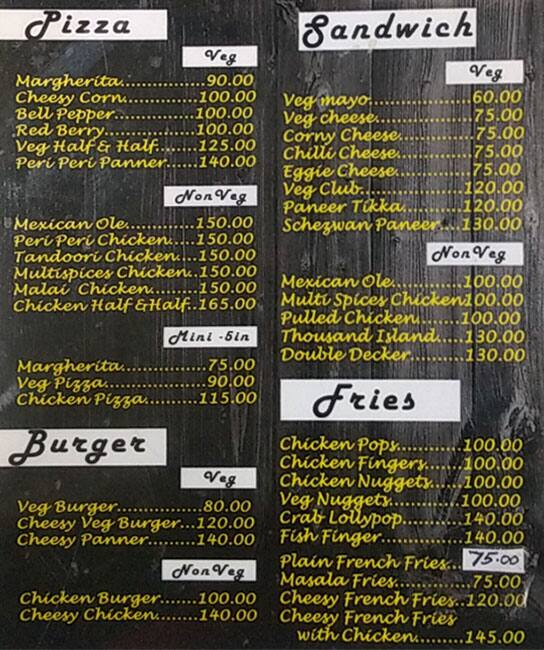 Pizza
Veg
Margherita..............90.00
Cheesy Corn............100.00
Bell Pepper.............100.00
Red Berry...............100.00
Veg Half & Half.......125.00
Peri Peri Panner.....140.00
Non Veg
Mexican Ole............150.00
Peri Peri Chicken....150.00
Tandoori Chicken....150.00
Multispices Chicken..150.00
Malai Chicken........150.00
Chicken Half &Half..165.00
Mini -5in
Margherita..............75.00
Veg Pizza................90.00
Chicken Pizza.........115.00
Burger
Veg
Veg Burger..............80.00
Cheesy Veg Burger...120.00
Cheesy Panner........140.00
Non Veg
Chicken Burger........100.00
Cheesy Chicken.......140.00
Sandwich
Veg
Veg mayo................60.00
Veg cheese...............75.00
Corny Cheese...........75.00
Chilli Cheese............75.00
Eggie Cheese............75.00
Veg Club................120.00
Paneer Tikka.........120.00
Schezwan Paneer...130.00
Non Veg
Mexican Ole...........100.00
Multi Spices Chicken100.00
Pulled Chicken.......100.00
Thousand Island.....130.00
Double Decker.........130.00
Fries
Chicken Pops..........100.00
Chicken Fingers......100.00
Chicken Nuggets.....100.00
Veg Nuggets...........100.00
Crab Lollypop.........140.00
Fish Finger............140.00
Plain French Fries...75.00
Masala Fries...........75.00
Cheesy French Fries..120.00
Cheesy French Fries
with Chicken.........145.00